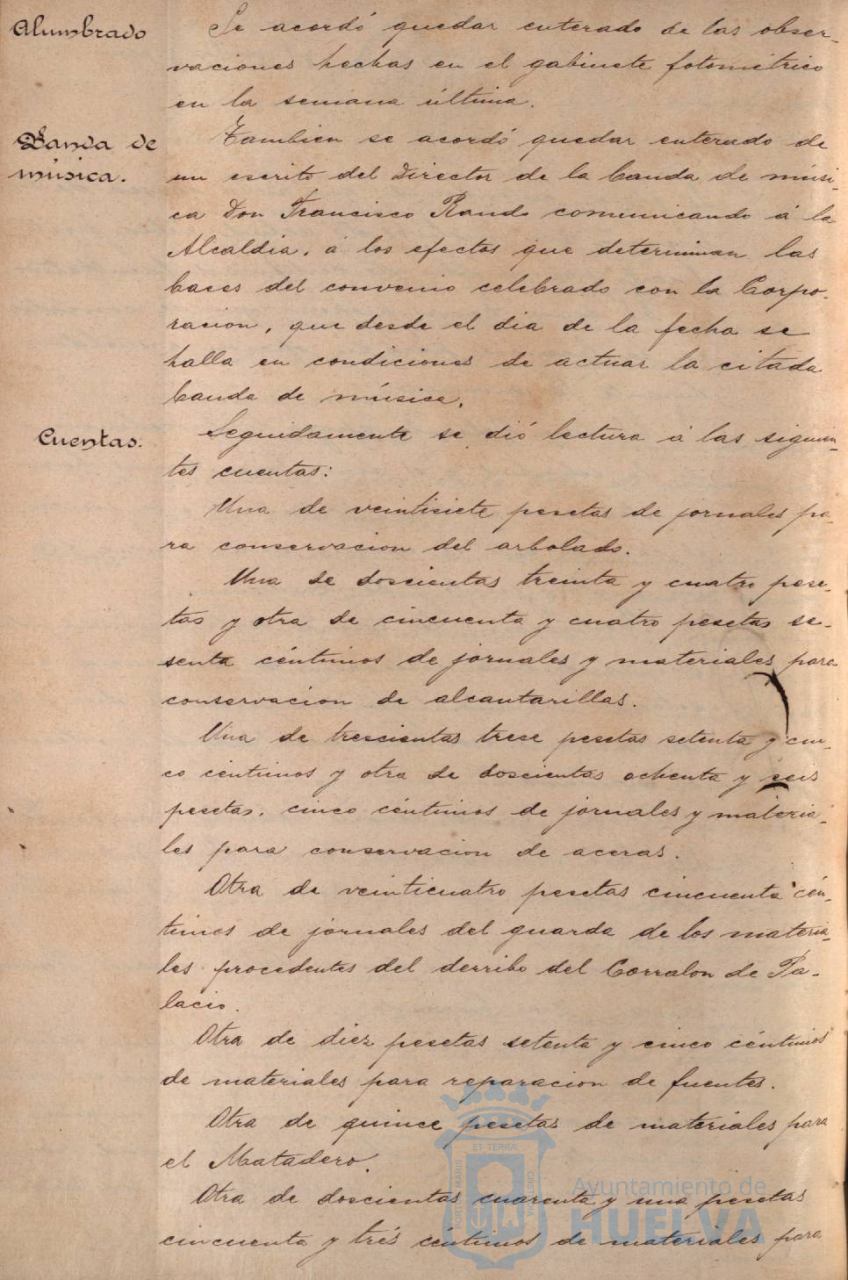 Alumbrado
Se acordó quedar enterado de las obser-
vaciones hechas en el gabinete fotométrico
en la semana última.
Banda de
música.
Tambien se acordó quedar enterado de
un escrito del Director de la banda de músi-
ca Don Francisco Rando comunicando á la
Alcaldía, á los efectos que determinan las
bases del convenio celebrado con la Corpo-
racion, que desde el dia de la fecha se
halla en condiciones de actuar la citada
banda de música.
Cuentas.
Seguidamente se dió lectura á las siguien-
tes cuentas:
Una de veintisiete pesetas de jornales pa-
ra conservacion del arbolado.
Una de doscientas treinta y cuatro pese-
tas y otra de cincuenta y cuatro pesetas se-
senta céntimos de jornales y materiales para
conservacion de alcantarillas.
Una de trescientas trece pesetas setenta y cin-
co céntimos y otra de doscientas ochenta y seis
pesetas, cinco céntimos de jornales y materia-
les para conservacion de aceras.
Otra de veinticuatro pesetas cincuenta cén-
timos de jornales del guarda de los materia-
les procedentes del derribo del Corralon de Pa-
lacio.
Otra de diez pesetas setenta y cinco céntimos
de materiales para reparacion de fuentes.
Otra de quince pesetas de materiales para
el Matadero.
Otra de doscientas cuarenta y una pesetas
cincuenta y trés centimos de materiales para
PORTUS MARIS
ET TERRA
CUSTODIO
Ayuntamiento de
HUELVA